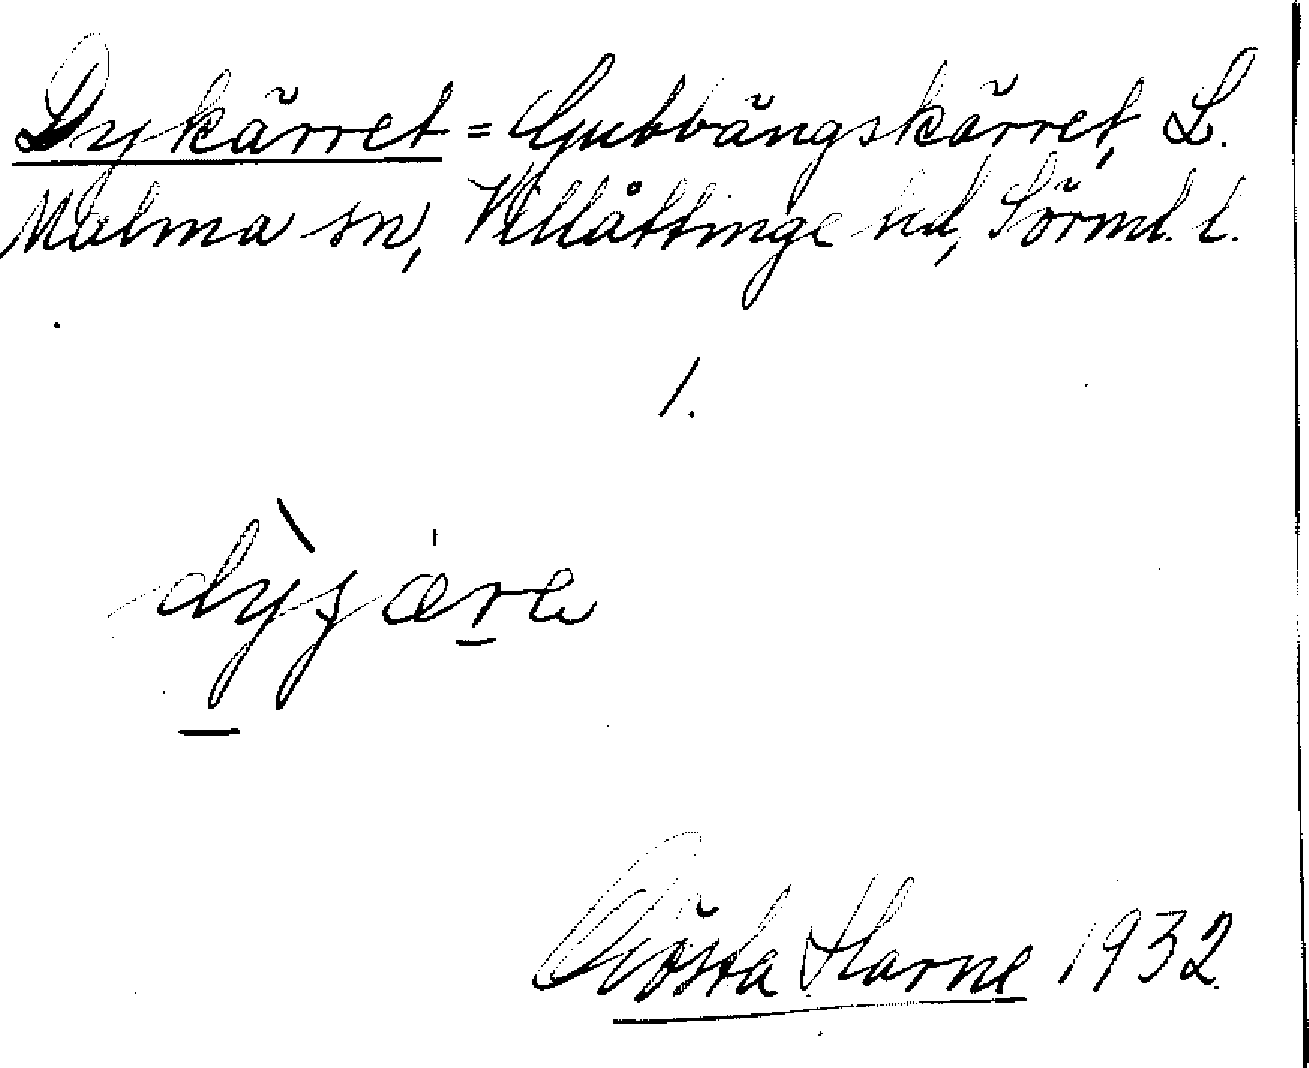 Dykärret = Gubbängskärret, L.
Malma sn, Villåttinge hd, Sörml. l.
1.
dỳ̖ʒære
Gösta Harne 1932